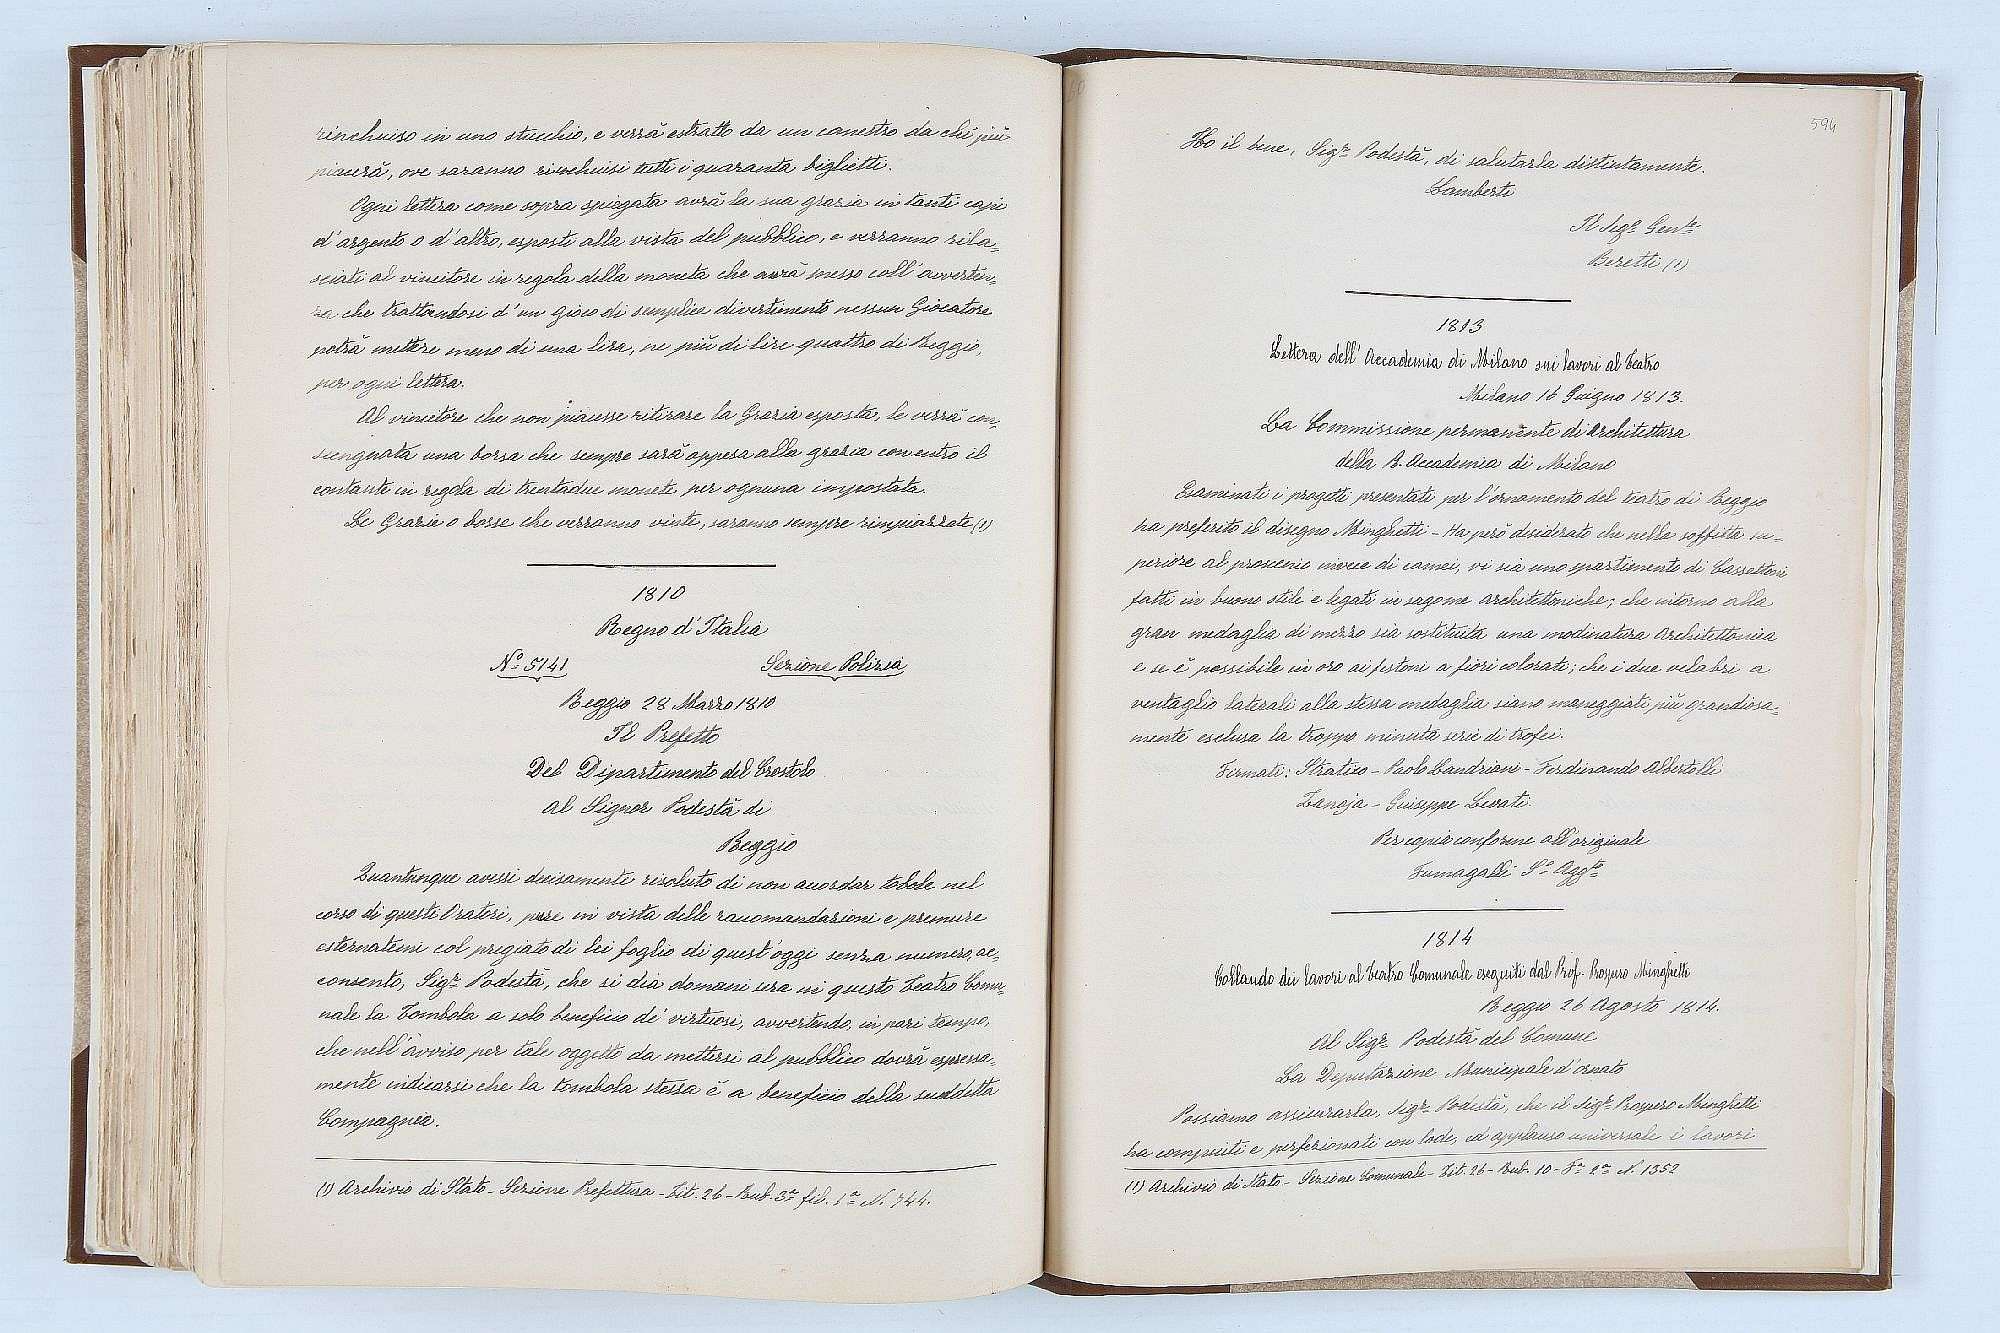 rinchiuso in uno stucchio, e verrà estratto da un canestro da chi più
piacerà, ove saranno rinchiusi tutti i quaranta biglietti.
Ogni lettera come sopra spiegata avrà la sua grazia in tanti capi
d'argento o d'altro, esposti alla vista del pubblico, e verranno rila-
sciati al vincitore in regola della moneta che avrà messo coll'avverten-
za che trattandosi d'un gioco di semplice divertimento nessun Giocatore
potrà mettere meno di una lira, ne più di lire quattro di Reggio,
per ogni lettera.
Al vincitore che non piacesse ritirare la Grazia esposta, le verrà con-
siengnata una borsa che sempre sarà appesa alla grazia con entro il
contante in regola di trentadue monete per ognuna impostata.
Le Grazie o borse che verranno vinte, saranno sempre rimpiazzate (1)
1810
Regno d'Italia
No 5141 Sezione Polizia
Reggio 28 Marzo 1810
Il Prefetto
Del Dipartimento del Crostolo
al Signor Podestà di
Reggio
Quantunque avessi decisamente risoluto di non accordar tobole nel
corso di questi Orateri, pure in vista delle raccomandazioni e premure
esternatemi col pregiato di lei foglio di quest'oggi senza numero, ac-
consento, Sigr. Podestà, che si dia domani sera in questo Teatro Comu-
nale la Tombola a solo beneficio de' virtuosi, avvertendo, in pari tempo,
che nell'avviso per tale oggetto da mettersi al pubblico dovrà espressa-
mente indicarsi che la tombola stessa è a beneficio della suddetta
Compagnia.
(1) Archivio di Stato - Sezione Prefettura - Tit. 26 - Rub. 3a fil. 1a N. 744.
594
Ho il bene, Sigr. Podestà, di salutarla distintamente.
Lamberti
Il Segr. Genle
Beretti (1)
1813
Lettera dell'Accademia di Milano sui lavori al Teatro
Milano 16 Giugno 1813.
La Commissione permanente di Architettura
della R. Accademia di Milano
Esaminati i progetti presentati per l'ornamento del teatro di Reggio
ha preferito il disegno Minghetti - Ha però desiderato che nella soffitta su-
periore al proscenio invece di camei, vi sia uno spartimento di Cassettoni
fatti in buono stile e legati in sagome architettoniche; che intorno alla
gran medaglia di mezzo sia sostituita una modinatura Architettonica
e se è possibile in oro ai festoni a fiori colorati; che i due velabri a
ventaglio laterali alla stessa medaglia siano maneggiati più grandiosa-
mente esclusa la troppo minuta serie di trofei.
Firmati: Stratico - Paolo Landriani - Ferdinando Albertolli
Zanoja - Guiseppe Levati.
Per copia conforme all'originale
Fumagalli So Aggto
1814
Collaudo dei lavori al Teatro Comunale eseguiti dal Prof. Prospero Minghetti
Reggio 26 Agosto 1814.
Al Sigr. Podestà del Comune
La Deputazione Municipale d'ornato
Possiamo assicurarla, Sigr. Podestà, che il Sigr. Prospero Minghetti
ha compiuti e perfezionati con lode, ed applauso universale i lavori
(1) Archivio di Stato - Sezione Comunale - Tit. 26 - Rub. 10 - Fa 2a N. 1352